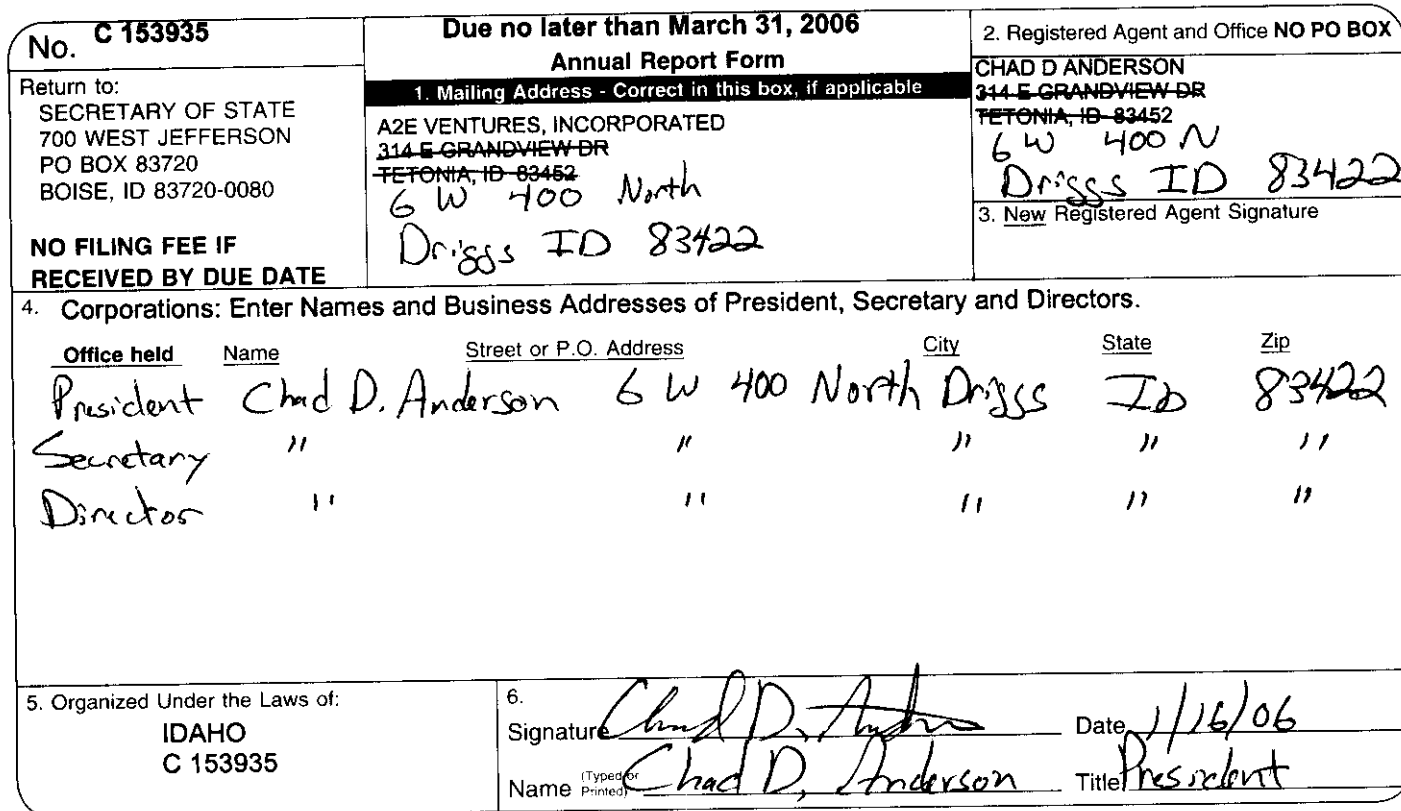 No. C 153935
Return to:
SECRETARY OF STATE
700 WEST JEFFERSON
PO BOX 83720
BOISE, ID 83720-0080
NO FILING FEE IF
RECEIVED BY DUE DATE
Due no later than March 31, 2006
Annual Report Form
1. Mailing Address - Correct in this box, if applicable
A2E VENTURES, INCORPORATED
314 E GRANDVIEW DR
TETONIA, ID 83452
6 W 400 North
Driggs ID 83422
2. Registered Agent and Office NO PO BOX
CHAD D ANDERSON
314 E GRANDVIEW DR
TETONIA, ID 83452
6 W 400 N
Driggs ID 83422
3. New Registered Agent Signature
4. Corporations: Enter Names and Business Addresses of President, Secretary and Directors.
Office held Name Street or P.O. Address City State Zip
President Chad D. Anderson 6 W 400 North Driggs ID 83422
Secretary " " " " "
Director " " " " "
5. Organized Under the Laws of:
IDAHO
C 153935
6.
Signature Chad D. Anderson Date 1/16/06
Name (Typed or Printed) Chad D. Anderson Title President